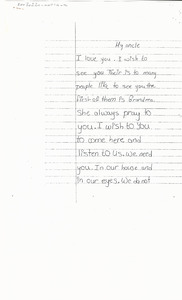 My uncle
I love you. I wish to
see you Their is to many
people like to see you the
first of them is Grandma.
She always pray to
you. I wish to you
to come here and
listen to us. We need
you. In our house and
in our eyes. We do not